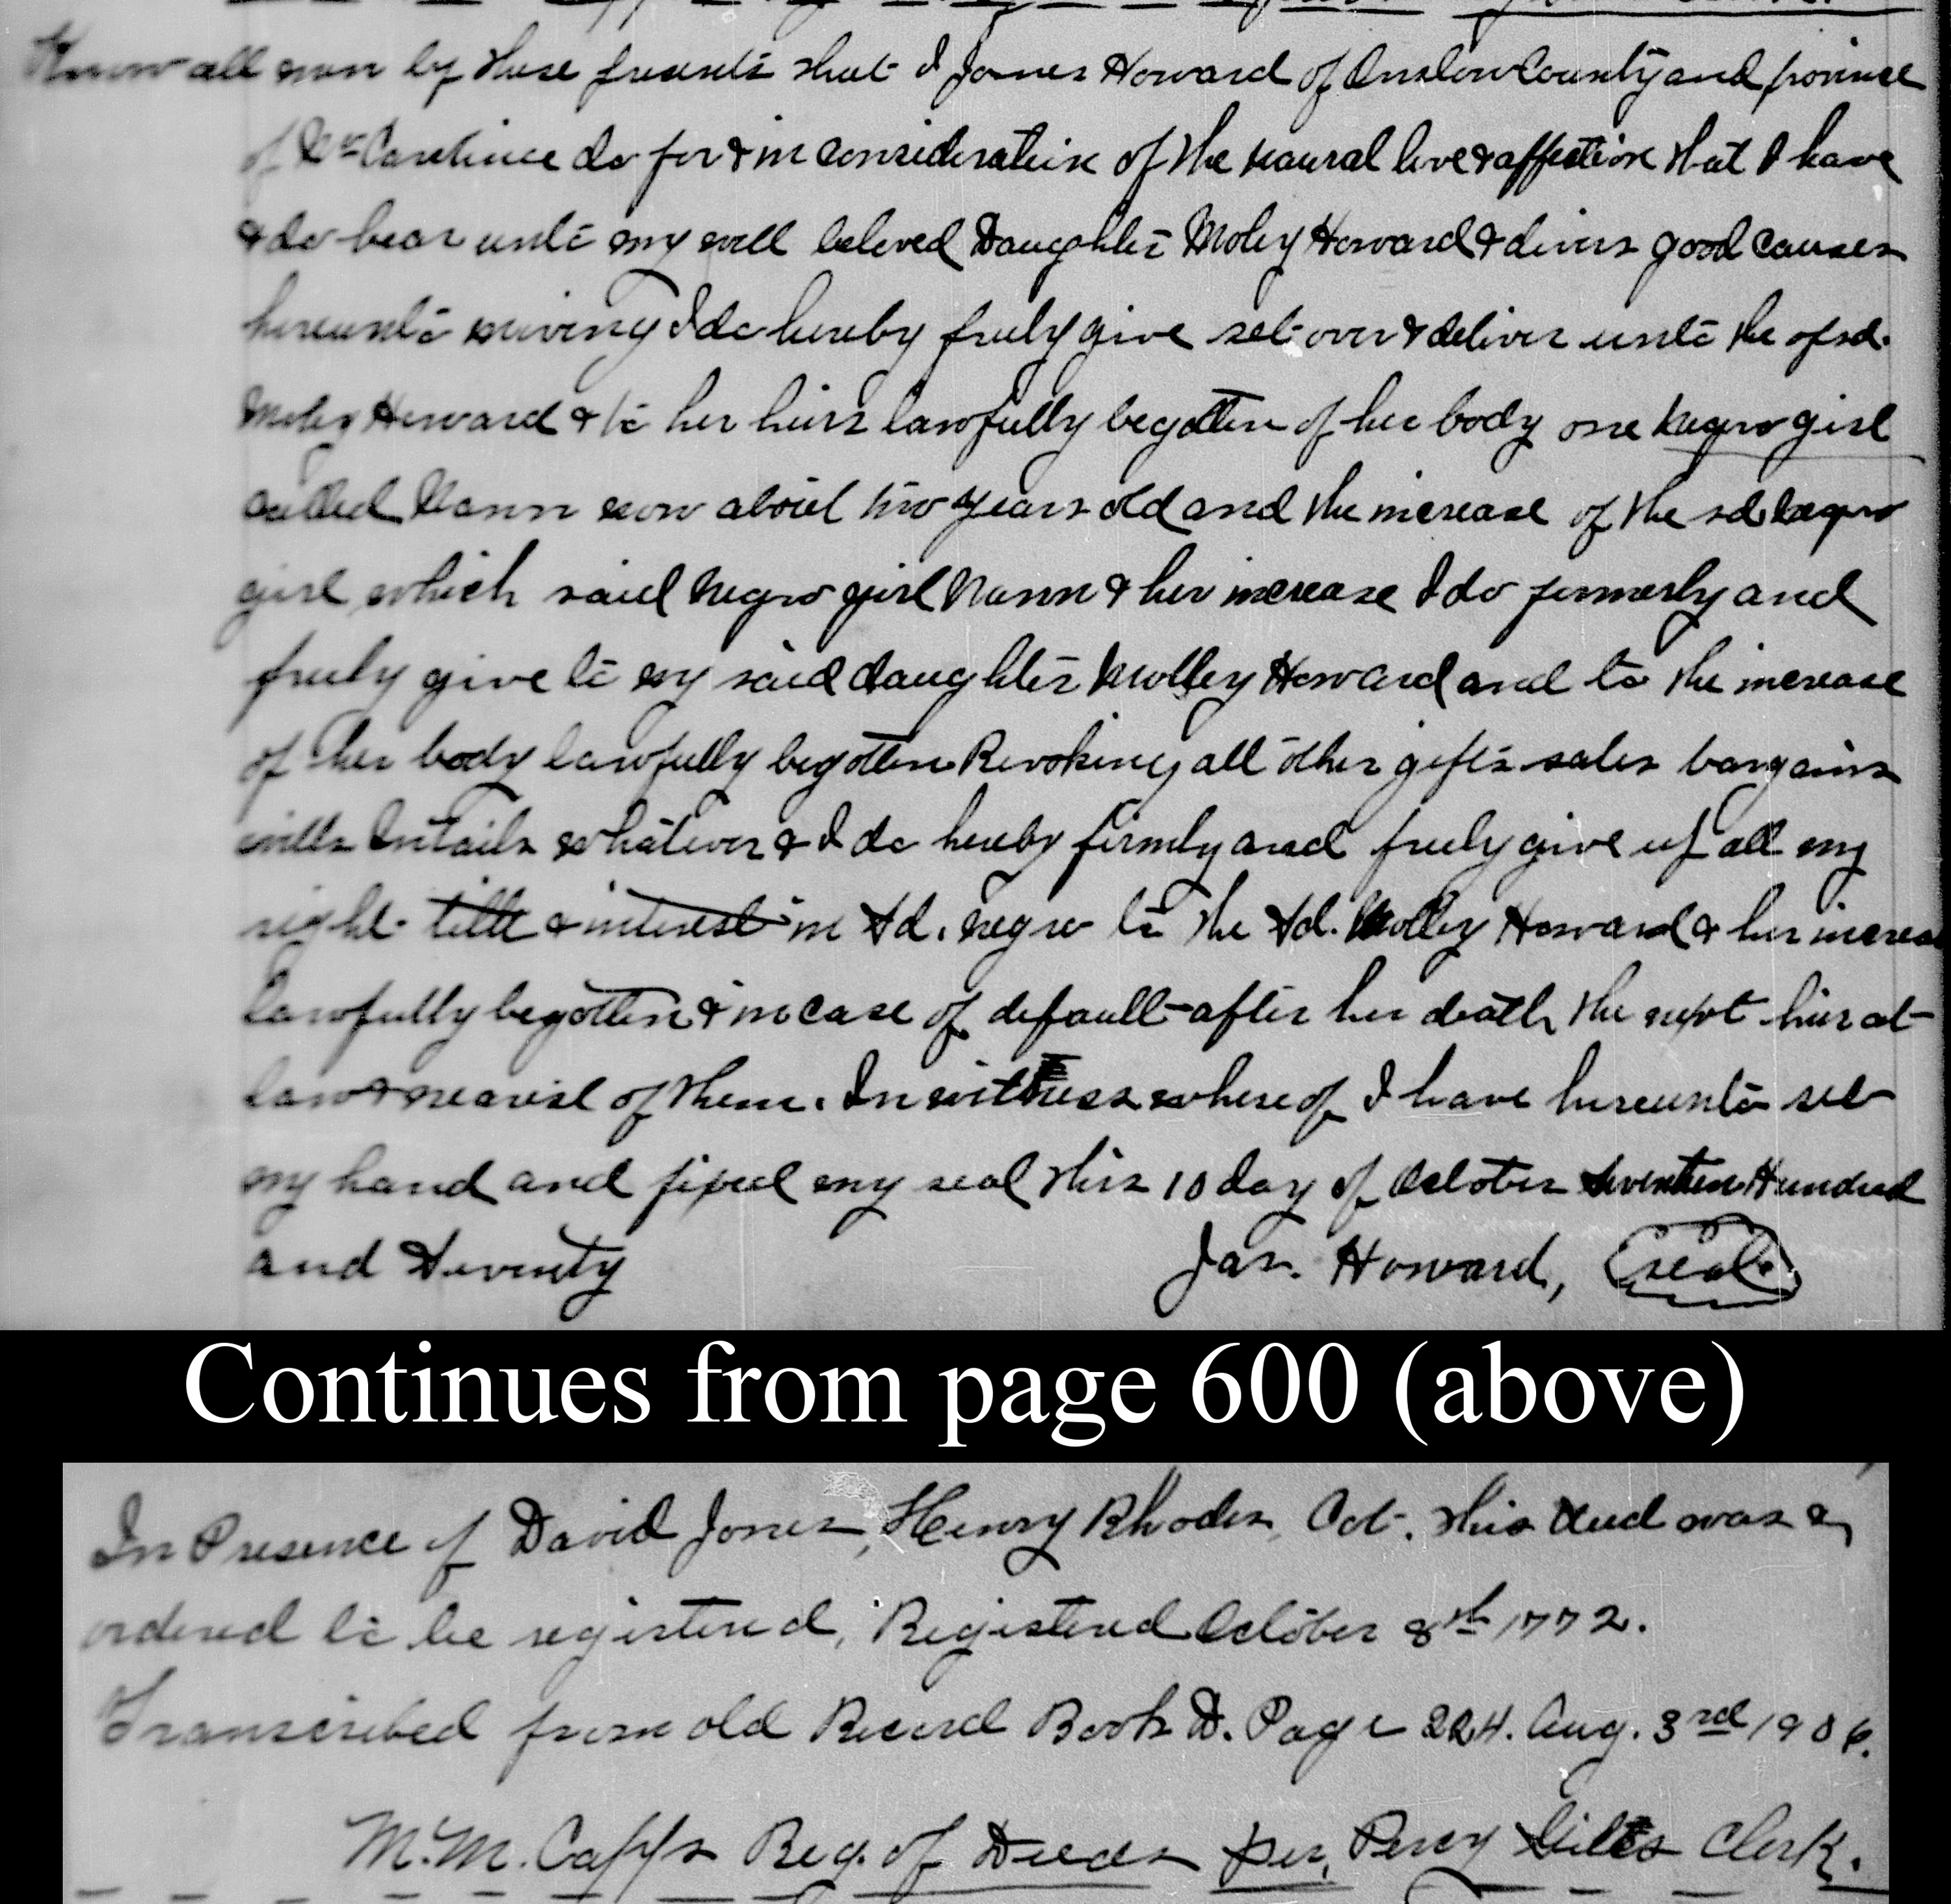 Know all men by these presents that I James Howard of Onslow County and province
of No Carolina do for & in consideration of the naural love & affection that I have
& do bear unto my well beloved Daughter Moley Howard & divers good causes
hereunto moving I do hereby freely give set over & deliver unto the afsd.
Moley Howard & to her heirs lawfully begotten of her body one negro girl
called Nann now about two years old and the increase of the sd negro
girl which said negro girl Nann & her increase I do formerly and
freely give to my said daughter Molley Howard and to the increase
of her body lawfully begotten Revoking all other gifts sales bargains
wills Intails whatever & I do hereby firmly and freely give up all my
right title & interest in sd. negro to the sd. Molley Howard & her increas
lawfully begotten & in case of default after her death the next heir at
law & nearest of them. In witness whereof I have hereunto set
my hand and fixed my seal this 10 day of October Seventeen Hundred
and Seventy Jas. Howard, (seal)
Continues from page 600 (above)
In Presence of David Jones, Henry Rhodes, Oct. this deed was
ordered to be registered, Registered October 8th 1772.
Transcribed from old Record Book D. Page 224. Aug. 3rd 1906.
M.M. Capps Reg. of Deeds per, Percy Clerk.